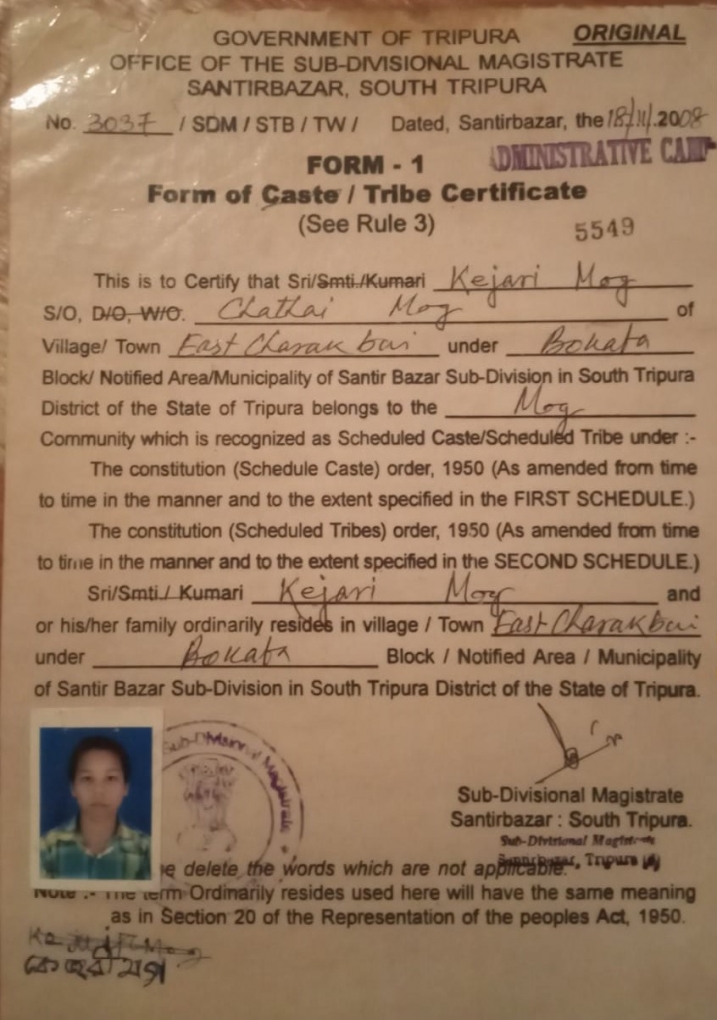 GOVERNMENT OF TRIPURA
ORIGINAL
OFFICE OF THE SUB-DIVISIONAL MAGISTRATE
SANTIRBAZAR, SOUTH TRIPURA
No. 3037 / SDM / STB / TW / Dated, Santirbazar, the 18/11/2008
ADMINISTRATIVE CAMP
FORM - 1
Form of Caste / Tribe Certificate
(See Rule 3)
5549
This is to Certify that Sri/Smti./Kumari Kejari Mog
S/O, D/O, W/O. Chathai Mog of
Village/ Town East Charakbai under Bokafa
Block/ Notified Area/Municipality of Santir Bazar Sub-Division in South Tripura
District of the State of Tripura belongs to the Mog
Community which is recognized as Scheduled Caste/Scheduled Tribe under :-
The constitution (Schedule Caste) order, 1950 (As amended from time
to time in the manner and to the extent specified in the FIRST SCHEDULE.)
The constitution (Scheduled Tribes) order, 1950 (As amended from time
to time in the manner and to the extent specified in the SECOND SCHEDULE.)
Sri/Smti./ Kumari Kejari Mog and
or his/her family ordinarily resides in village / Town East Charakbai
under Bokafa Block / Notified Area / Municipality
of Santir Bazar Sub-Division in South Tripura District of the State of Tripura.
Sub-Divisional Magistrate
Sub-Divisional Magistrate
Santirbazar : South Tripura.
Sub-Divisional Magistrate
Santirbazar, Tripura (S)
delete the words which are not applicable.
Note :- The term Ordinarily resides used here will have the same meaning
as in Section 20 of the Representation of the peoples Act, 1950.
Mog
কেজরী মগ